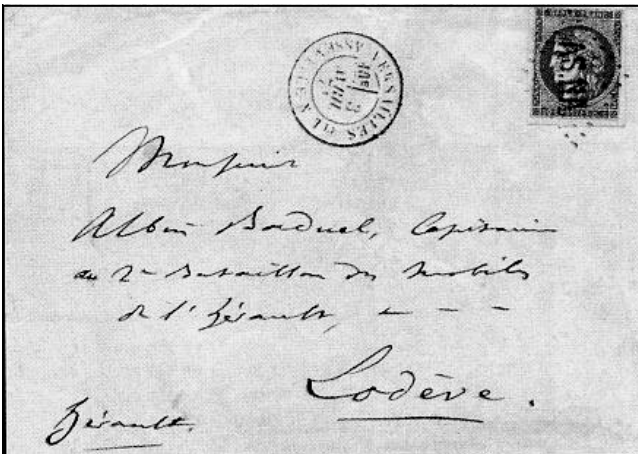 VERSAILLES
Monsieur
Albin Baduel, Capitaine
au 2e Bataillon des Mobiles
de l'Hérault, - - -
Lodève.
Hérault.